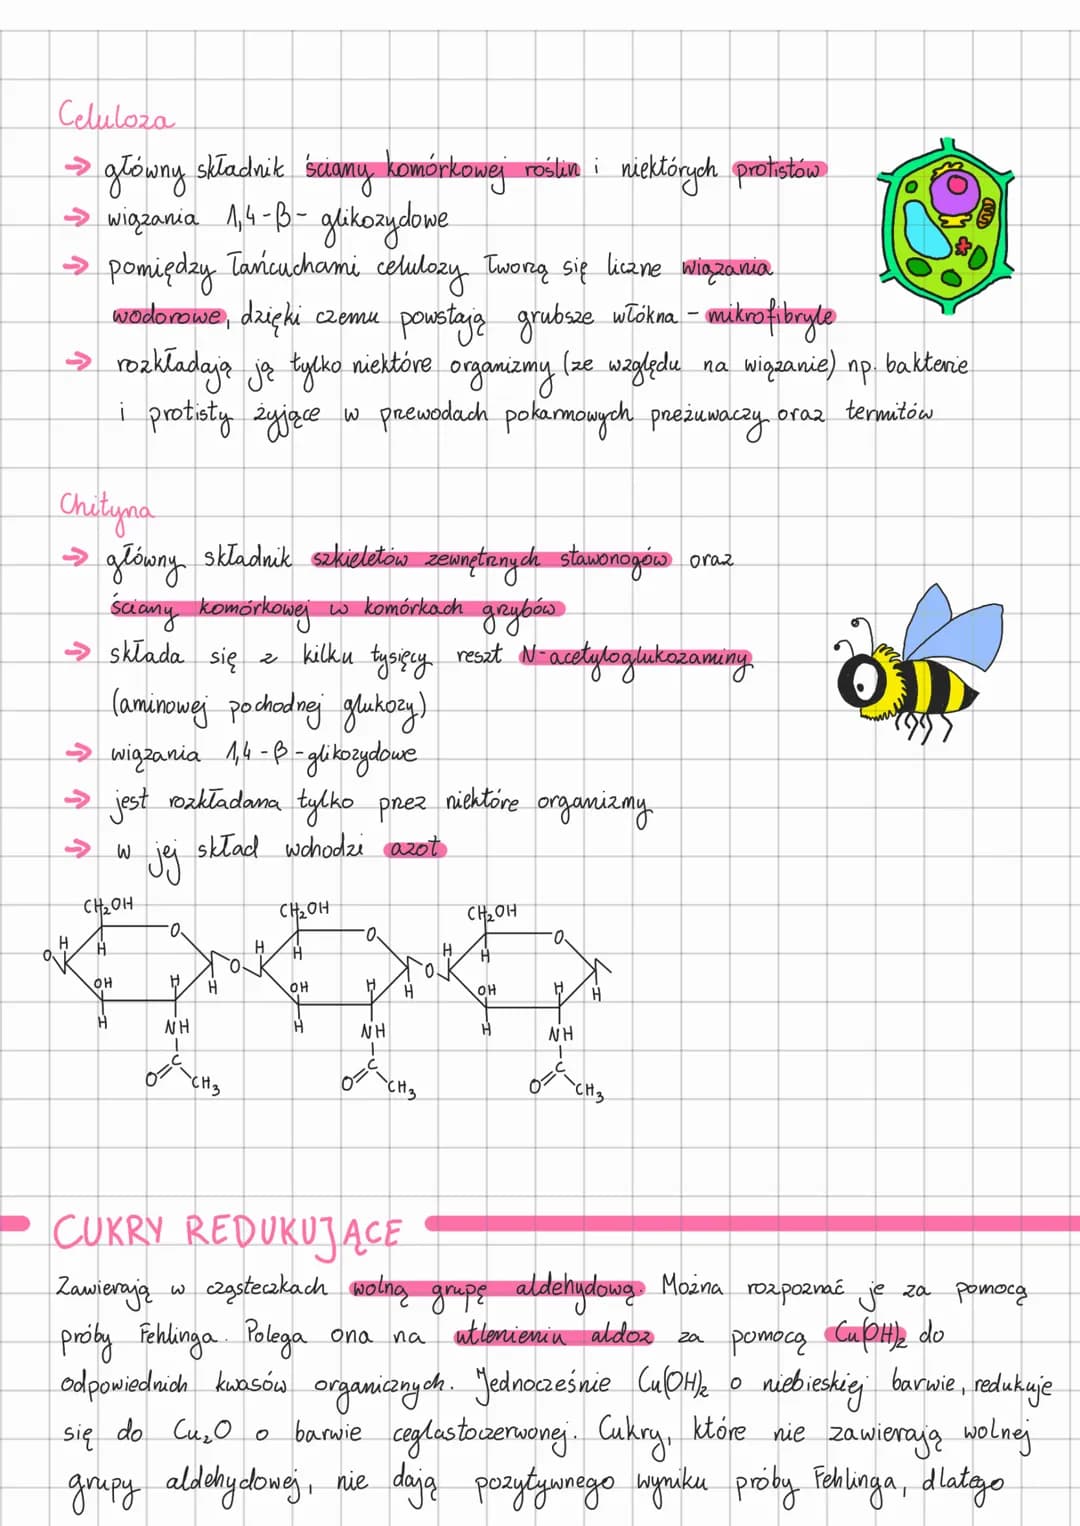 Celuloza
→ główny składnik ściany komórkowej roślin i niektórych protistów
→ wiązania 1,4-β-glikozydowe
→ pomiędzy łańcuchami celulozy tworzą się liczne wiązania
wodorowe, dzięki czemu powstają grubsze włókna - mikrofibryle
→ rozkładają ją tylko niektóre organizmy (ze względu na wiązanie) np. bakterie
i protisty żyjące w przewodach pokarmowych przeżuwaczy oraz termitów
Chityna
→ główny składnik szkieletów zewnętrznych stawonogów oraz
ściany komórkowej w komórkach grzybów
→ składa się z kilku tysięcy reszt N-acetyloglukozaminy
(aminowej pochodnej glukozy)
→ wiązania 1,4-β-glikozydowe
→ jest rozkładana tylko przez niektóre organizmy
→ w jej skład wchodzi azot
CH₂OH CH₂OH CH₂OH
O O O
H H H H H H
O O O
OH H H OH H H OH H H
H NH H NH H NH
C C C
O CH₃ O CH₃ O CH₃
CUKRY REDUKUJĄCE
Zawierają w cząsteczkach wolną grupę aldehydową. Można rozpoznać je za pomocą
próby Fehlinga. Polega ona na utlenieniu aldoz za pomocą Cu(OH)₂ do
odpowiednich kwasów organicznych. Jednocześnie Cu(OH)₂ o niebieskiej barwie, redukuje
się do Cu₂O o barwie ceglastoczerwonej. Cukry, które nie zawierają wolnej
grupy aldehydowej, nie dają pozytywnego wyniku próby Fehlinga, dlatego